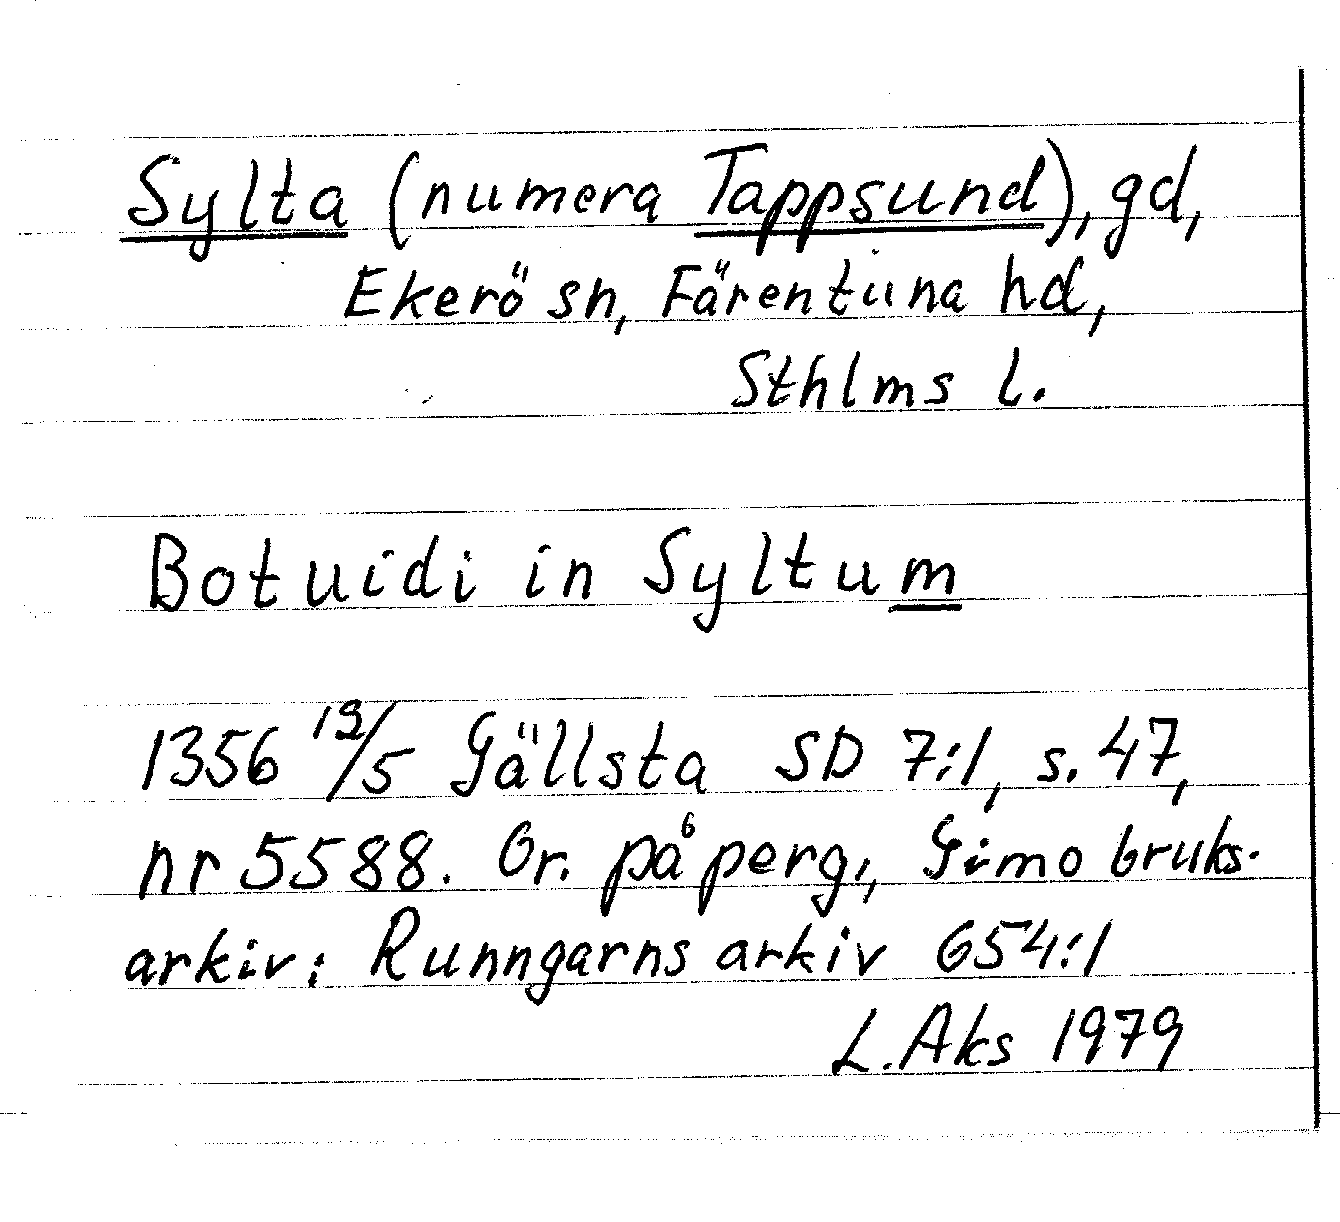 Sylta (numera Tappsund), gd,
Ekerö sn, Färentuna hd,
Sthlms l.
Botuidi in Syltum
1356 19/5 Gällsta SD 7:1, s. 47,
nr 5588. Or. på perg., Gimo bruks-
arkiv: Runngarns arkiv 654:1
L. Aks 1979